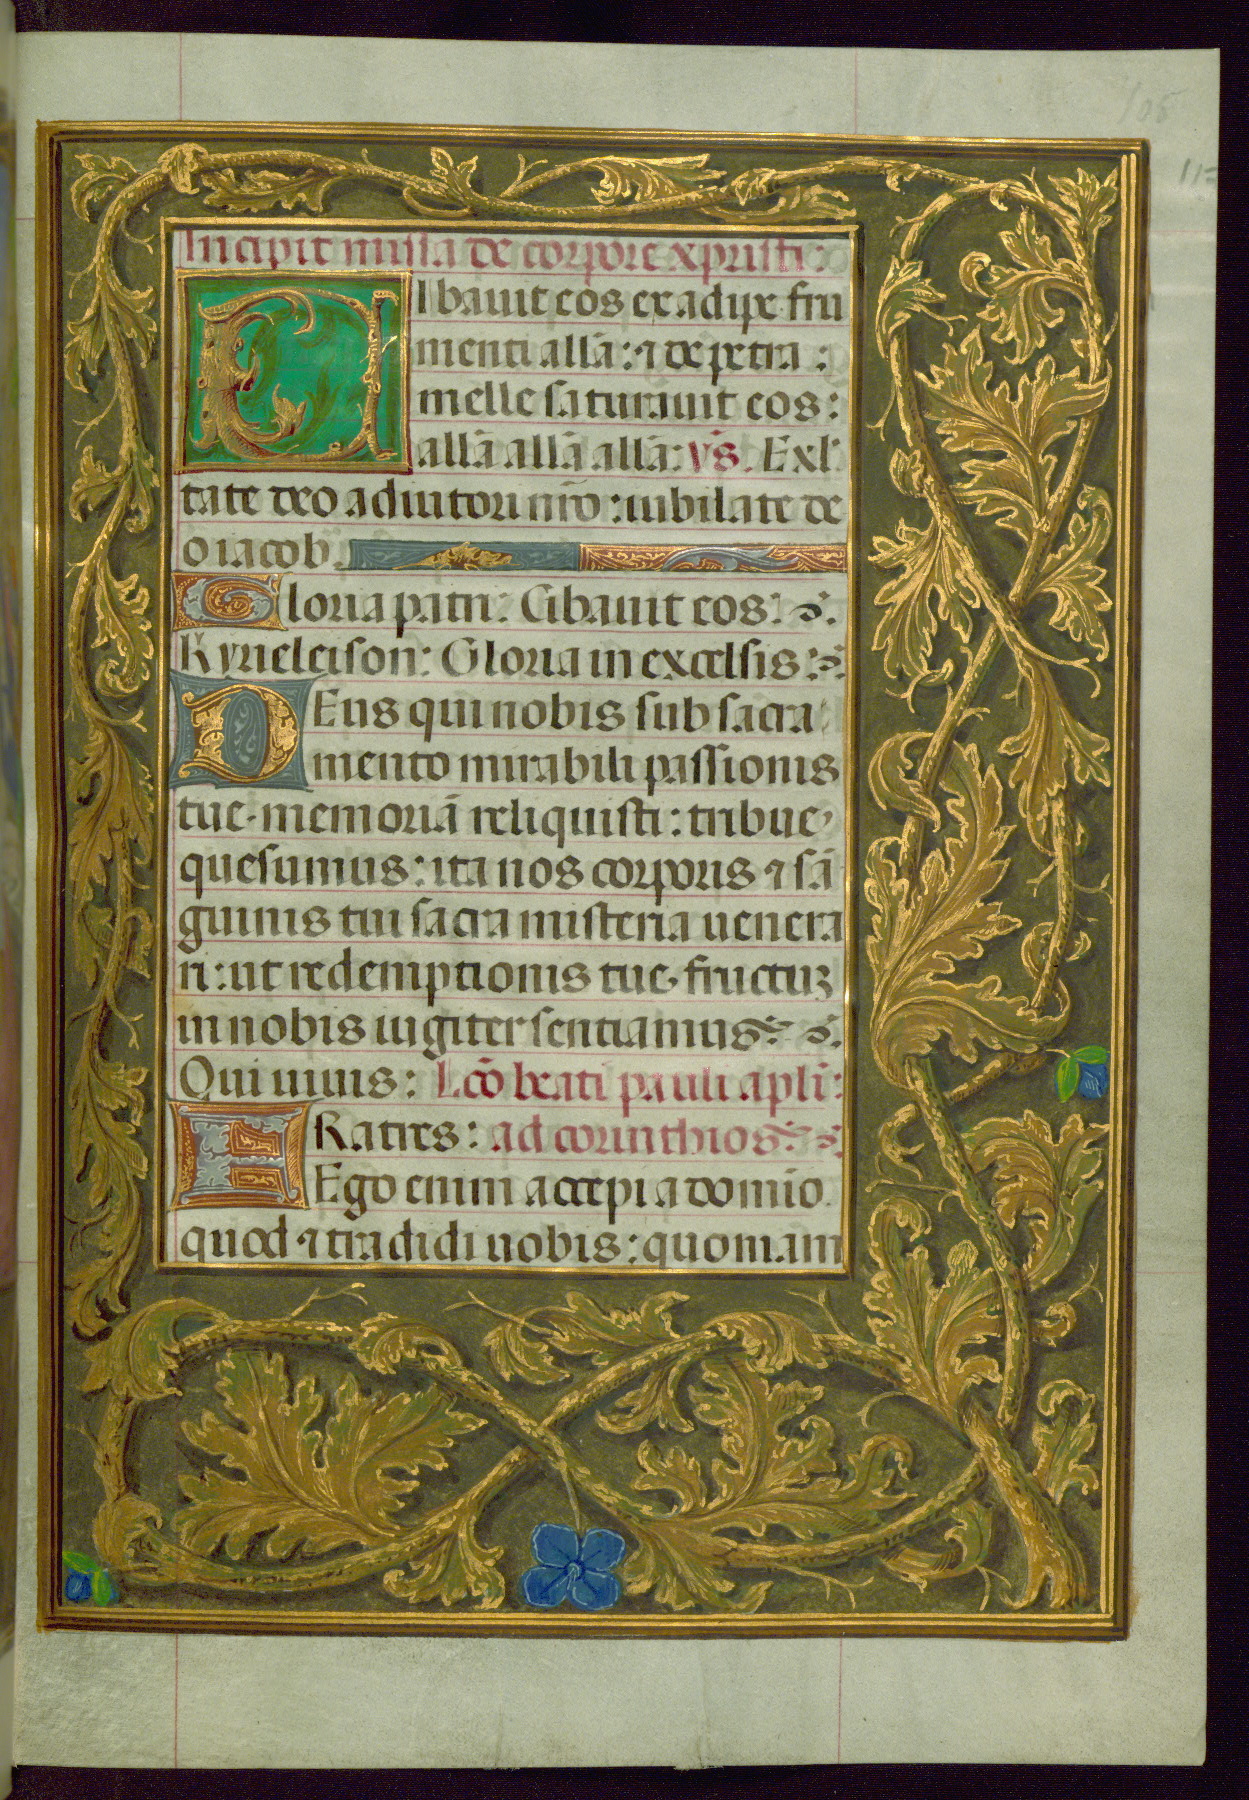 105
Incipit missa de corpore xpristi:
CIbauit eos ex adipe fru
menti allã: ⁊ de petra:
melle saturauit eos:
allã allã allã: v̄s. Exl
tate deo adiutori nr̄o: iubilate de
o iacob.
Gloria patri: Cibauit eos:
Kyrieleison: Gloria in excelsis:
DEus qui nobis sub sacra
mento mirabili passionis
tue. memoriã reliquisti: tribue
quesumus: ita nos corporis ⁊ sã
guinis tui sacra misteria uenera
ri: ut redemptionis tue. fructuʒ
in nobis iugiter sentiamus
Qui uiuis: Lcõ beati pauli apli:
FRatres: ad corinthios
Ego enim accepi a domĩo.
quod ⁊ tradidi uobis: quoniam